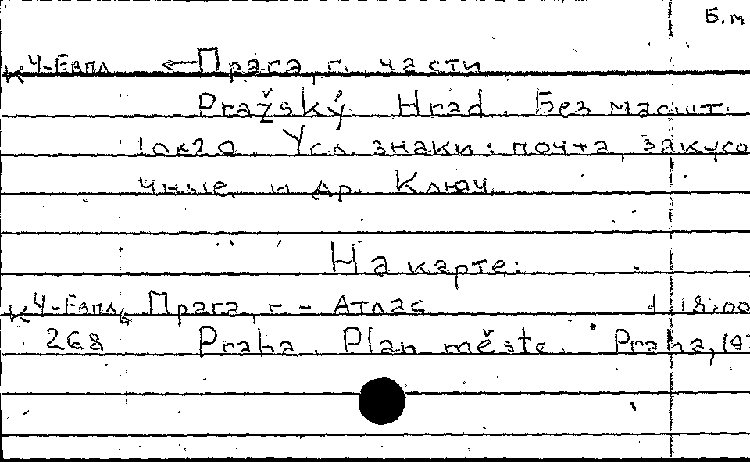 Б.м
К 4-Европ ← Прага, г. части
Pražský Hrad. Без масшт.
10x20. Усл. знаки: почта, закусо
чные и др. Ключ.
На карте:
Прага, г. - Атлас 1:18.00
268 Praha. Plan města. Praha, 197